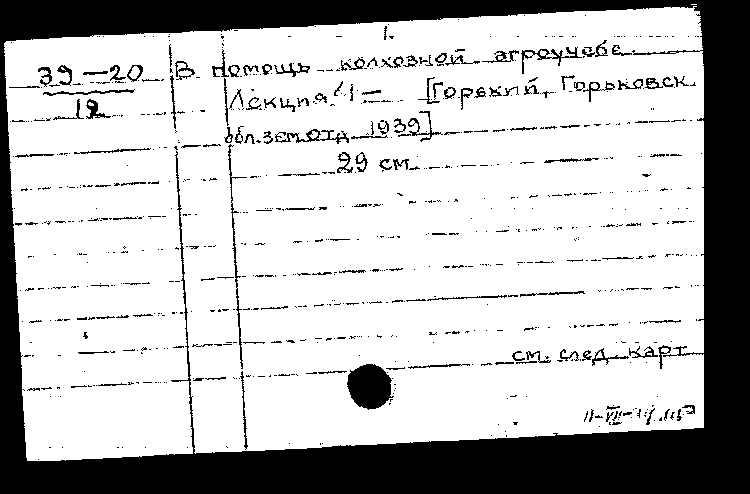 1.
39-20 В помощь колхозной агроучебе.
12 Лекция 1- [Горький, Горьковск.
обл.зем.отд. 1939]
29 см.
см. след. карт